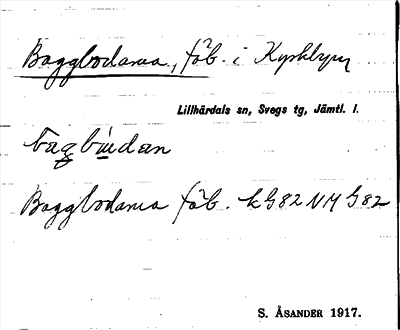 Baggbodarna, fäb. i Kyrkbyn
Lillhärdals sn, Svegs tg, Jämtl. l.
Baggbodarna fäb. k G82 NM G82
S. ÅSANDER 1917.